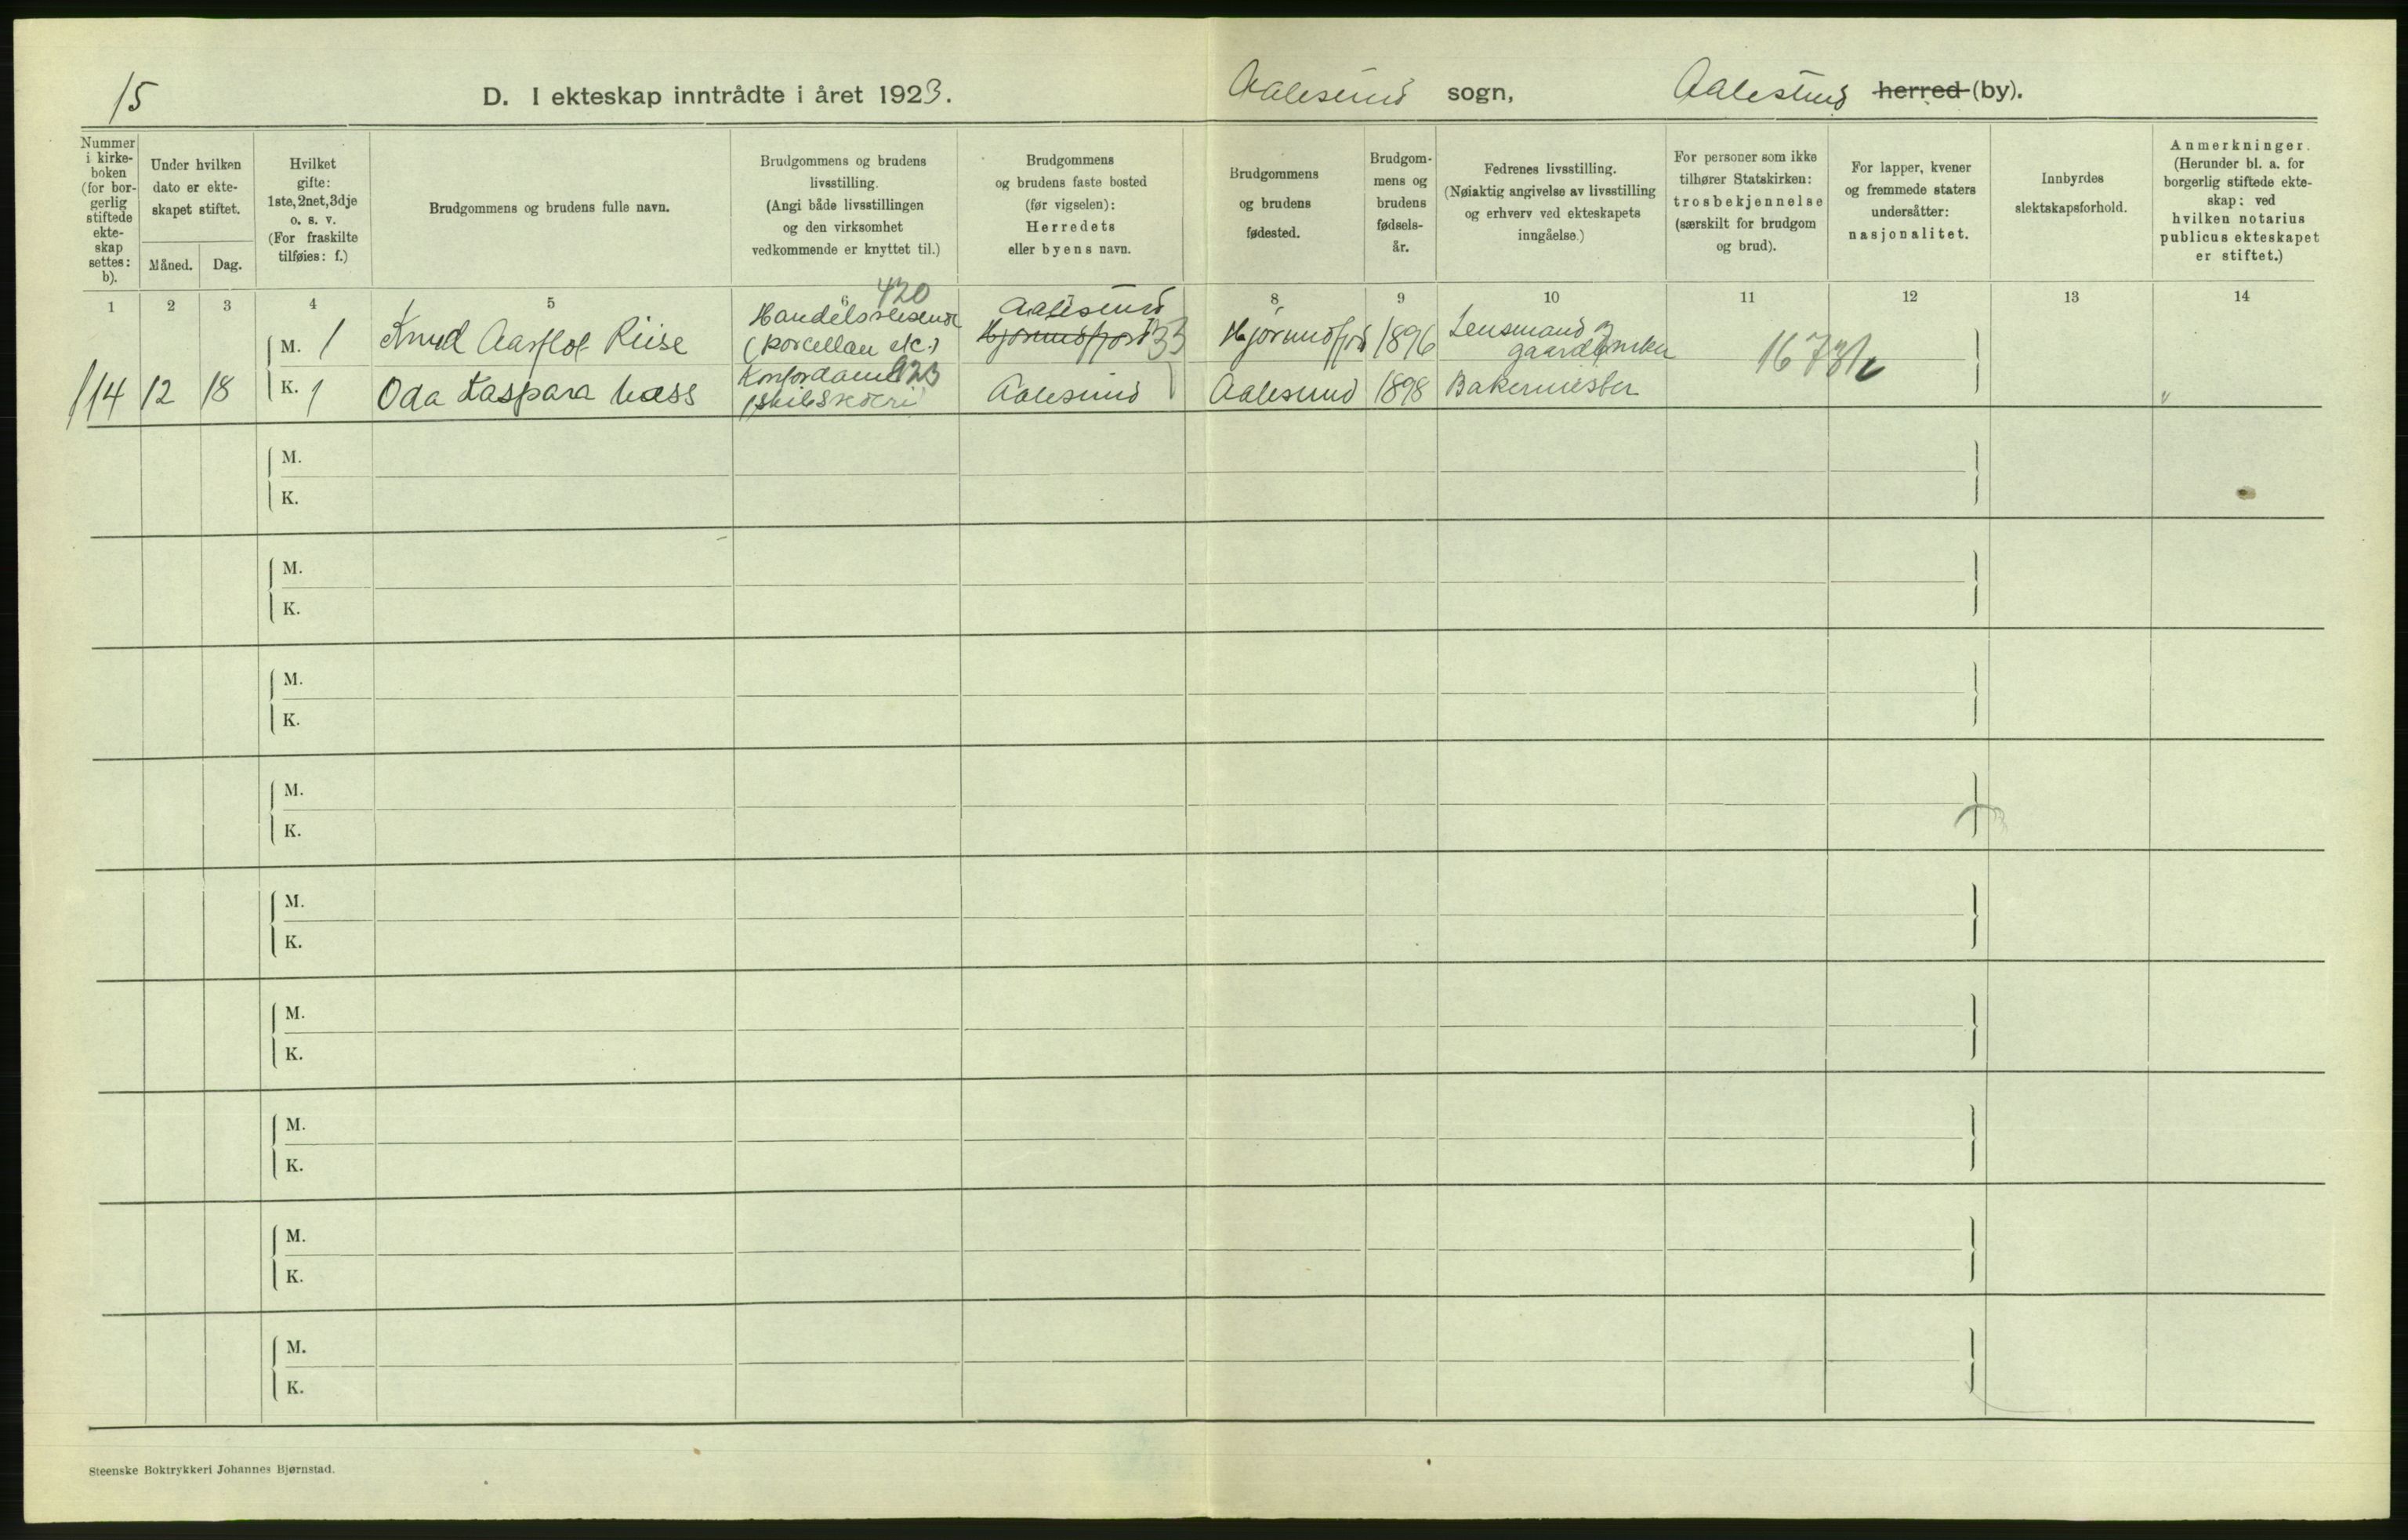 15
D. I ekteskap inntrådte i året 1923.
Aalesund sogn,
Aalesund herred (by).
Nummer
i kirke-
boken
(for bor-
gerlig
stiftede
ekte-
skap
settes:
b).
Under hvilken
dato er ekte-
skapet stiftet.
Måned.
Dag.
Hvilket
gifte:
1ste, 2net, 3dje
o. s. v.
(For fraskilte
tilføies: f.)
Brudgommens og brudens fulle navn.
Brudgommens og brudens
livsstilling.
(Angi både livsstillingen
og den virksomhet
vedkommende er knyttet til.)
Brudgommens
og brudens faste bosted
(før vigselen):
Herredets
eller byens navn.
Brudgommens
og brudens
fødested.
Brudgom-
mens og
brudens
fødsels-
år.
Fedrenes livsstilling.
(Nøiaktig angivelse av livsstilling
og erhverv ved ekteskapets
inngåelse.)
For personer som ikke
tilhører Statskirken:
trosbekjennelse
(særskilt for brudgom
og brud).
For lapper, kvener
og fremmede staters
undersåtter:
nasjonalitet.
Innbyrdes
slektskapsforhold.
Anmerkninger.
(Herunder bl. a. for
borgerlig stiftede ekte-
skap: ved
hvilken notarius
publicus ekteskapet
er stiftet.)
1 2 3 4 5 6 8 9 10 11 12 13 14
420
Handelsreisende
(porcellan etc.)
Aalesund
Hjørundfjord 33
M. 1 Knud Aarflot Riise
Hjørundfjord 1896
Lensmand
gaardbruker
1673
114 12 18
K. 1 Oda Kaspara
Kontordame 923
Aalesund
Aalesund 1898 Bakermester
"
M.
K.
M.
K.
M.
K.
M.
K.
M.
K.
M.
K.
M.
K.
M.
K.
M.
K.
Steenske Boktrykkeri Johannes Bjørnstad.